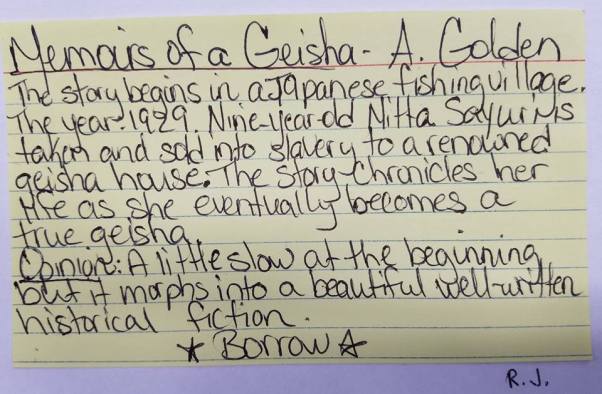 Memoirs of a Geisha - A. Golden
The story begins in a Japanese fishing village.
The year: 1929. Nine-year-old Nitta Sayuri is
taken and sold into slavery to a renowned
geisha house. The story chronicles her
life as she eventually becomes a
true geisha.
Opinion: A little slow at the beginning
but it morphs into a beautiful well-written
historical fiction.
★ Borrow ★
R.J.